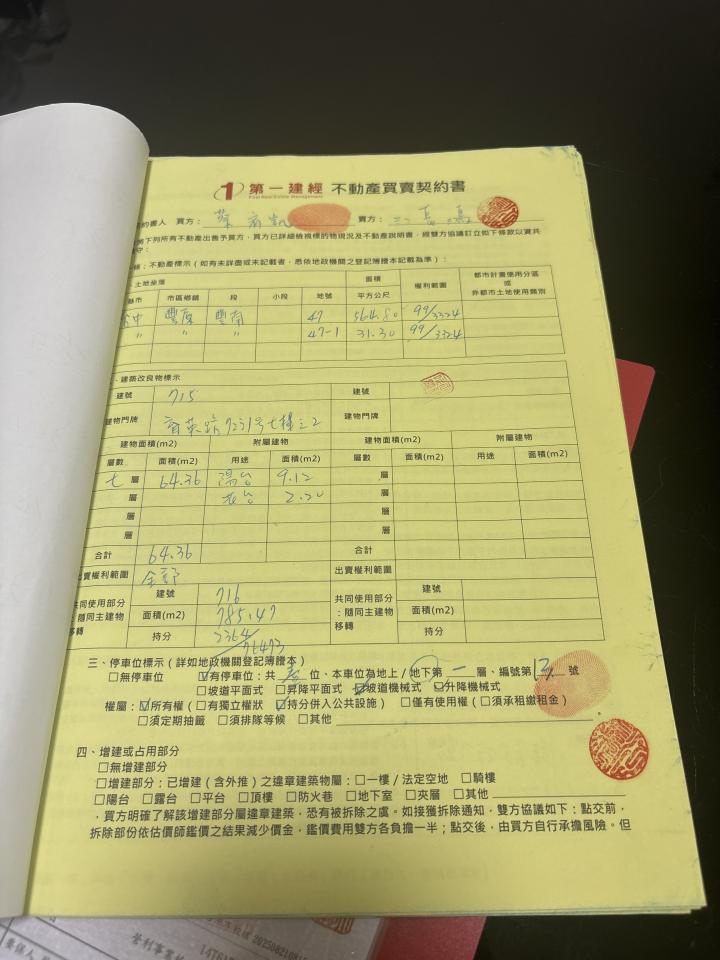 第一建經 不動產買賣契約書
First Real Estate Management
約書人 買方： 賣方：
將下列所有不動產出售予買方，買方已詳細檢視標的物現況及不動產說明書，經雙方協議訂立如下條款以資共
守：
標：不動產標示（如有未詳盡或未記載者，悉依地政機關之登記簿謄本記載為準）：
、土地坐落 面積 權利範圍 都市計畫使用分區 或 非都市土地使用類別
縣市 市區鄉鎮 段 小段 地號 平方公尺
中 豐原 豐南 47 564.80 99/3324
〃 〃 〃 47-1 31.30 99/3324
、建築改良物標示
建號 715 建號
建物門牌 街231号七樓之2 建物門牌
建物面積(m2) 附屬建物 建物面積(m2) 附屬建物
層數 面積(m2) 用途 面積(m2) 層數 面積(m2) 用途 面積(m2)
七 層 64.36 陽台 9.12 層
層 花台 2.20 層
層 層
層 層
合計 64.36 合計
出賣權利範圍 全部 出賣權利範圍
共同使用部分：隨同主建物移轉 建號 716 共同使用部分：隨同主建物移轉 建號
面積(m2) 785.47 面積(m2)
持分 2364/76473 持分
三、停車位標示（詳如地政機關登記簿謄本）
□無停車位 ☑有停車位：共 壹 位、本車位為地上／地下第 一 層、編號第 13 號
□坡道平面式 □昇降平面式 ☑坡道機械式 □升降機械式
權屬：☑所有權（□有獨立權狀 ☑持分併入公共設施） □僅有使用權（□須承租繳租金）
□須定期抽籤 □須排隊等候 □其他
四、增建或占用部分
□無增建部分
□增建部分：已增建（含外推）之違章建築物屬：□一樓／法定空地 □騎樓
□陽台 □露台 □平台 □頂樓 □防火巷 □地下室 □夾層 □其他
，買方明確了解該增建部分屬違章建築，恐有被拆除之虞。如接獲拆除通知，雙方協議如下：點交前，
拆除部份依估價師鑑價之結果減少價金，鑑價費用雙方各負擔一半；點交後，由買方自行承擔風險。但
營利事業